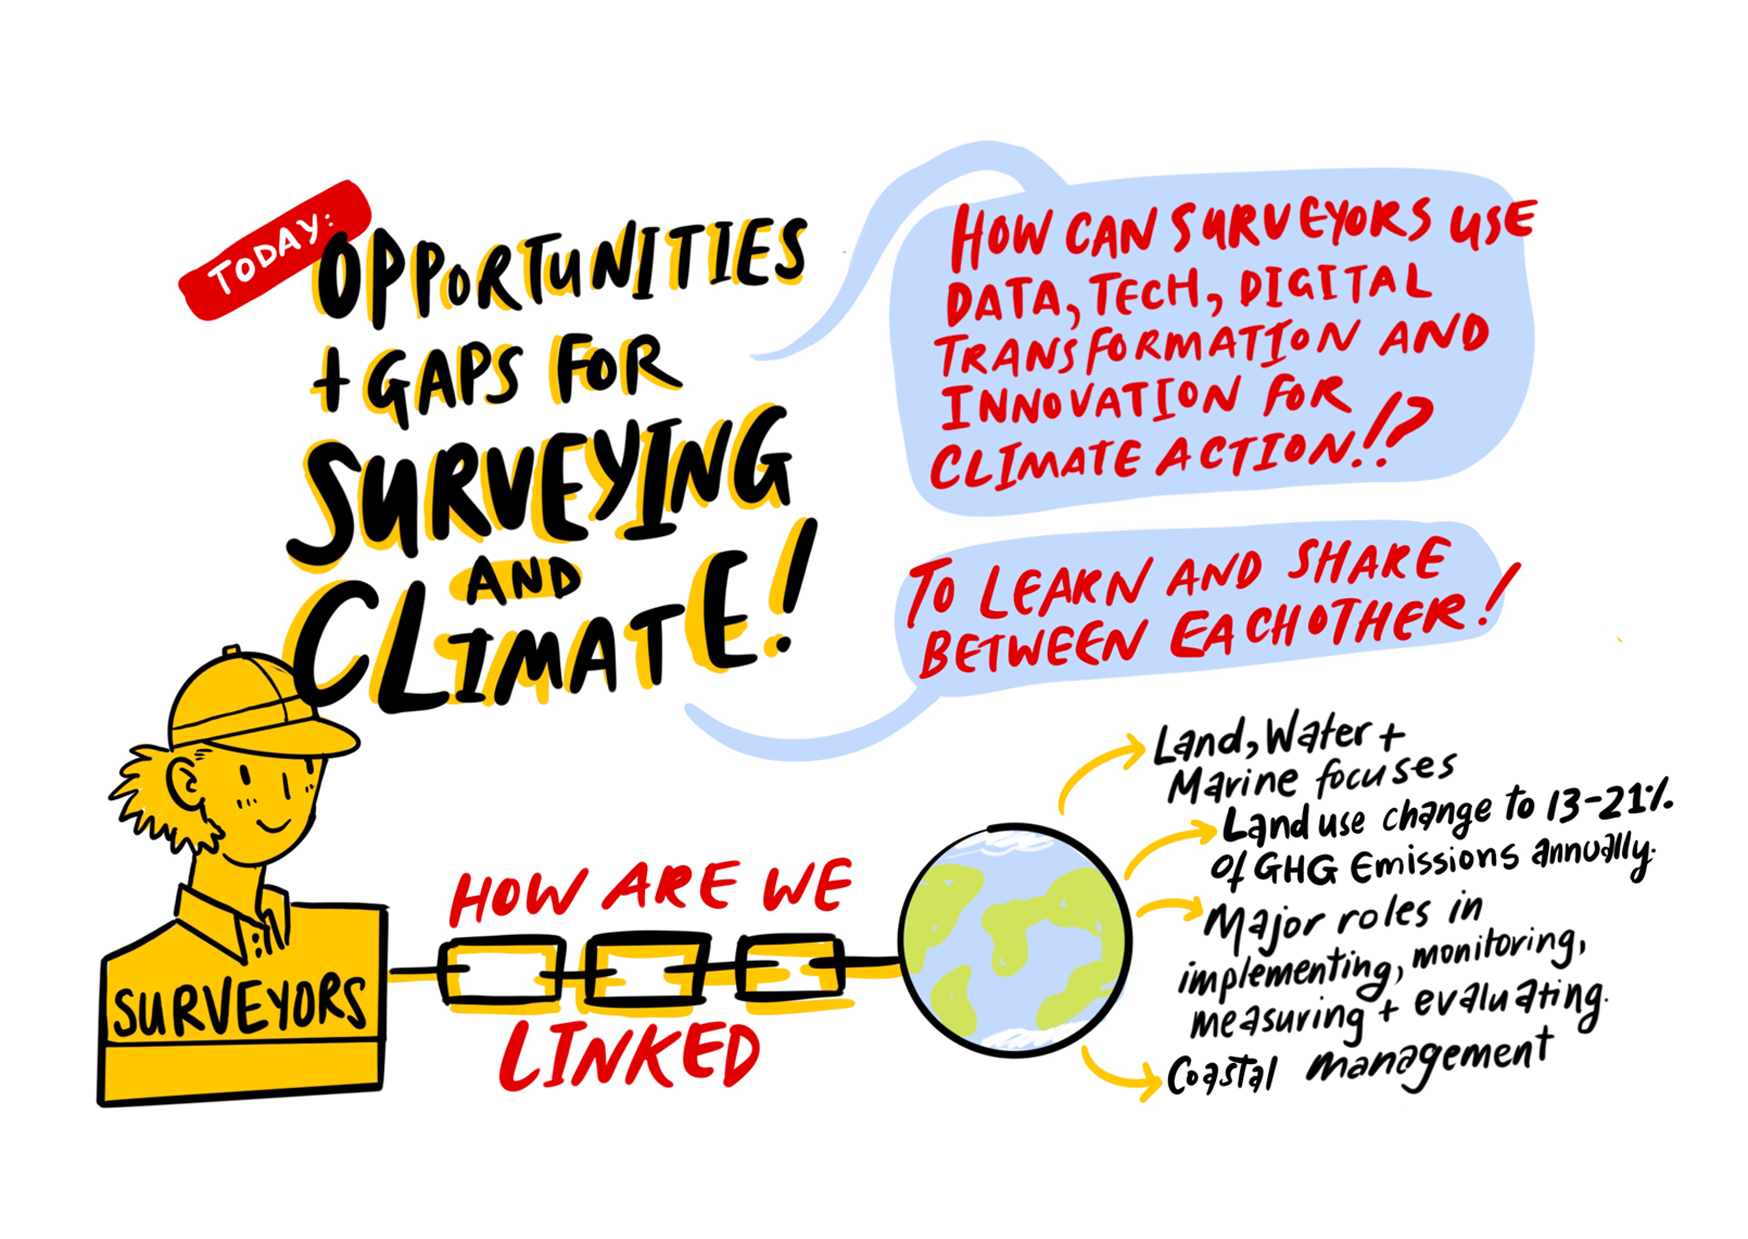 TODAY:
OPPORTUNITIES
+ GAPS FOR
SURVEYING
AND
CLIMATE!
HOW CAN SURVEYORS USE
DATA, TECH, DIGITAL
TRANSFORMATION AND
INNOVATION FOR
CLIMATE ACTION!?
TO LEARN AND SHARE
BETWEEN EACHOTHER!
SURVEYORS
HOW ARE WE
LINKED
Land, Water +
Marine focuses
Land use change to 13-21%
of GHG Emissions annually.
Major roles in
implementing, monitoring,
measuring + evaluating.
Coastal management